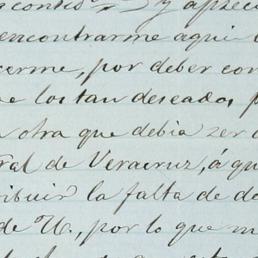 y apreci
encontrarme aqui
cerme, por deber con
e los tan deseados p
otra que debia ser
ral de Veracruz, á qu
ribuir la falta de de
de U., por lo que m